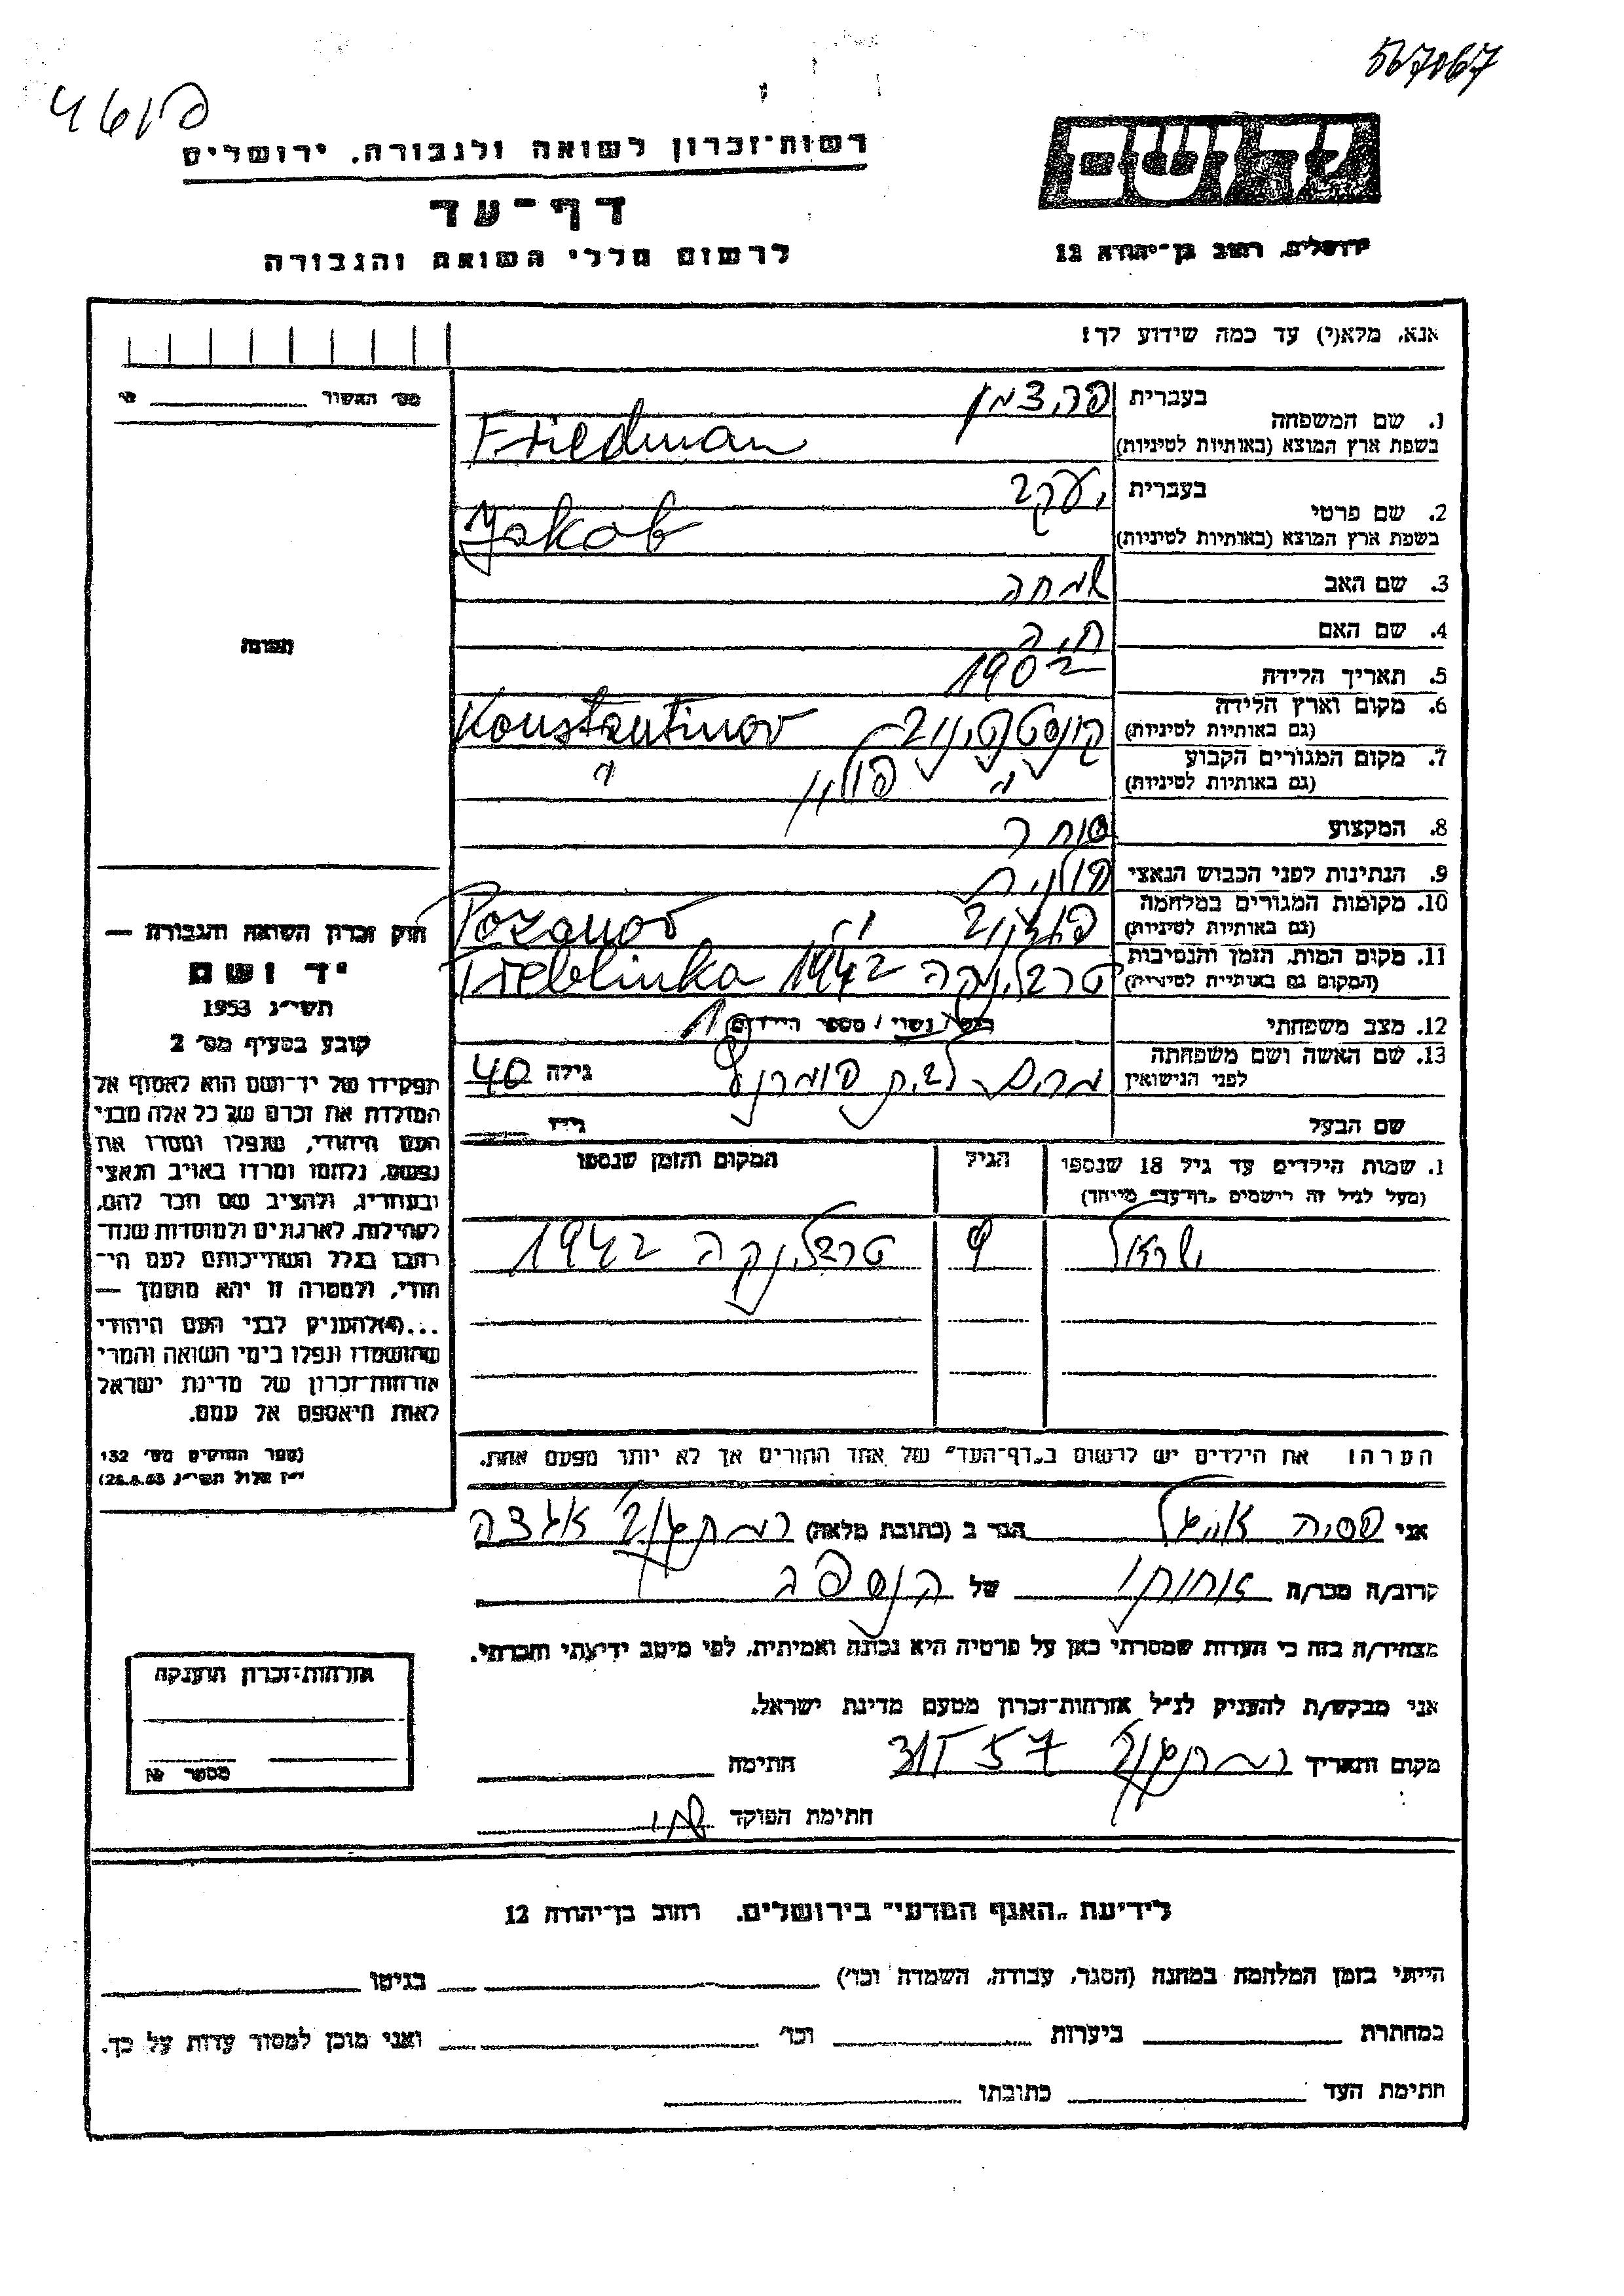 567067
רשות־זכרון לשואה ולגבורה, ירושלים
דף־עד
לרשום חללי השואה והגבורה
יד ושם
ירושלים, רחוב בן־יהודה 12
אנא, מלא(י) עד כמה שידוע לך!
מס׳ האשור № ____
1. שם המשפחה בעברית פרידמן
בשפת ארץ המוצא (באותיות לטיניות) Friedman
2. שם פרטי בעברית יעקב
בשפת ארץ המוצא (באותיות לטיניות) Jakob
3. שם האב שמחה
4. שם האם חיה
5. תאריך הלידה 1902
6. מקום וארץ הלידה (גם באותיות לטיניות) קונסטנטינוב Konstantinov
7. מקום המגורים הקבוע (גם באותיות לטיניות) " פולין "
8. המקצוע סוחר
9. הנתינות לפני הכבוש הנאצי פולנית
10. מקומות המגורים במלחמה (גם באותיות לטיניות)
11. מקום המות, הזמן והנסיבות (המקום גם באותיות לטיניות) טרבלינקה 1942 Treblinka
12. מצב משפחתי רווק / נשוי / מספר הילדים 1
13. שם האשה ושם משפחתה לפני הנישואין מרים לבית גילה 40
שם הבעל גילו ____
תמונה
1. שמות הילדים עד גיל 18 שנספו הגיל המקום והזמן שנספו
(מעל לגיל זה רישמים „דף־עד״ מיוחד)
ישראל 9 טרבלינקה 1942
הערה: את הילדים יש לרשום ב„דף־העד״ של אחד ההורים אך לא יותר מפעם אחת.
חוק זכרון השואה והגבורה —
יד ושם
תשי״ג 1953
קובע בסעיף מס׳ 2
תפקידו של יד־ושם הוא לאסוף אל
המולדת את זכרם של כל אלה מבני
העם היהודי, שנפלו ומסרו את
נפשם, נלחמו ומרדו באויב הנאצי
ובעוזריו, ולהציב שם וזכר להם,
לקהילות, לארגונים ולמוסדות שנח־
רבו בגלל השתייכותם לעם הי־
הודי, ולמטרה זו יהא מוסמך —
...(4) להעניק לבני העם היהודי
שהושמדו ונפלו בימי השואה והמרי
אזרחות־זכרון של מדינת ישראל
לאות היאספם אל עמם.
(ספר החוקים מס׳ 132
י״ז אלול תשי״ג 28.8.53)
אני הגר ב (כתובת מלאה)
קרוב/ה מכר/ה אחותו של הנספה
מצהיר/ה בזה כי העדות שמסרתי כאן על פרטיה היא נכונה ואמיתית, לפי מיטב ידיעתי והכרתי.
אני מבקש/ת להעניק לנ״ל אזרחות־זכרון מטעם מדינת ישראל.
מקום ותאריך 57 חתימה
חתימת הפוקד
אזרחות־זכרון הוענקה
מספר №
לידיעת „האגף המדעי״ בירושלים, רחוב בן־יהודה 12
הייתי בזמן המלחמה במחנה (הסגר, עבודה, השמדה וכו׳) ____ בגיטו ____
במחתרת ____ ביערות ____ וכו׳ ____ ואני מוכן למסור עדות על כך.
חתימת העד ____ כתובתו ____